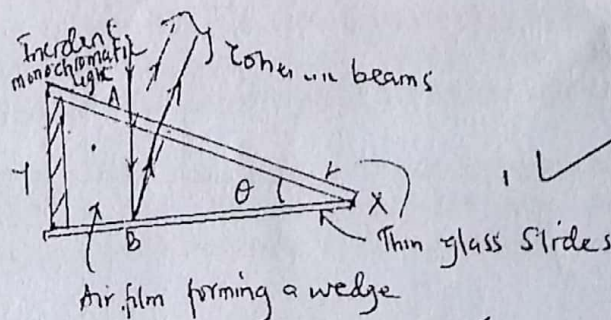 Incident
monochromatic
light
coherent beams
A
Y
θ
X
B
Thin glass Slides
Air film forming a wedge